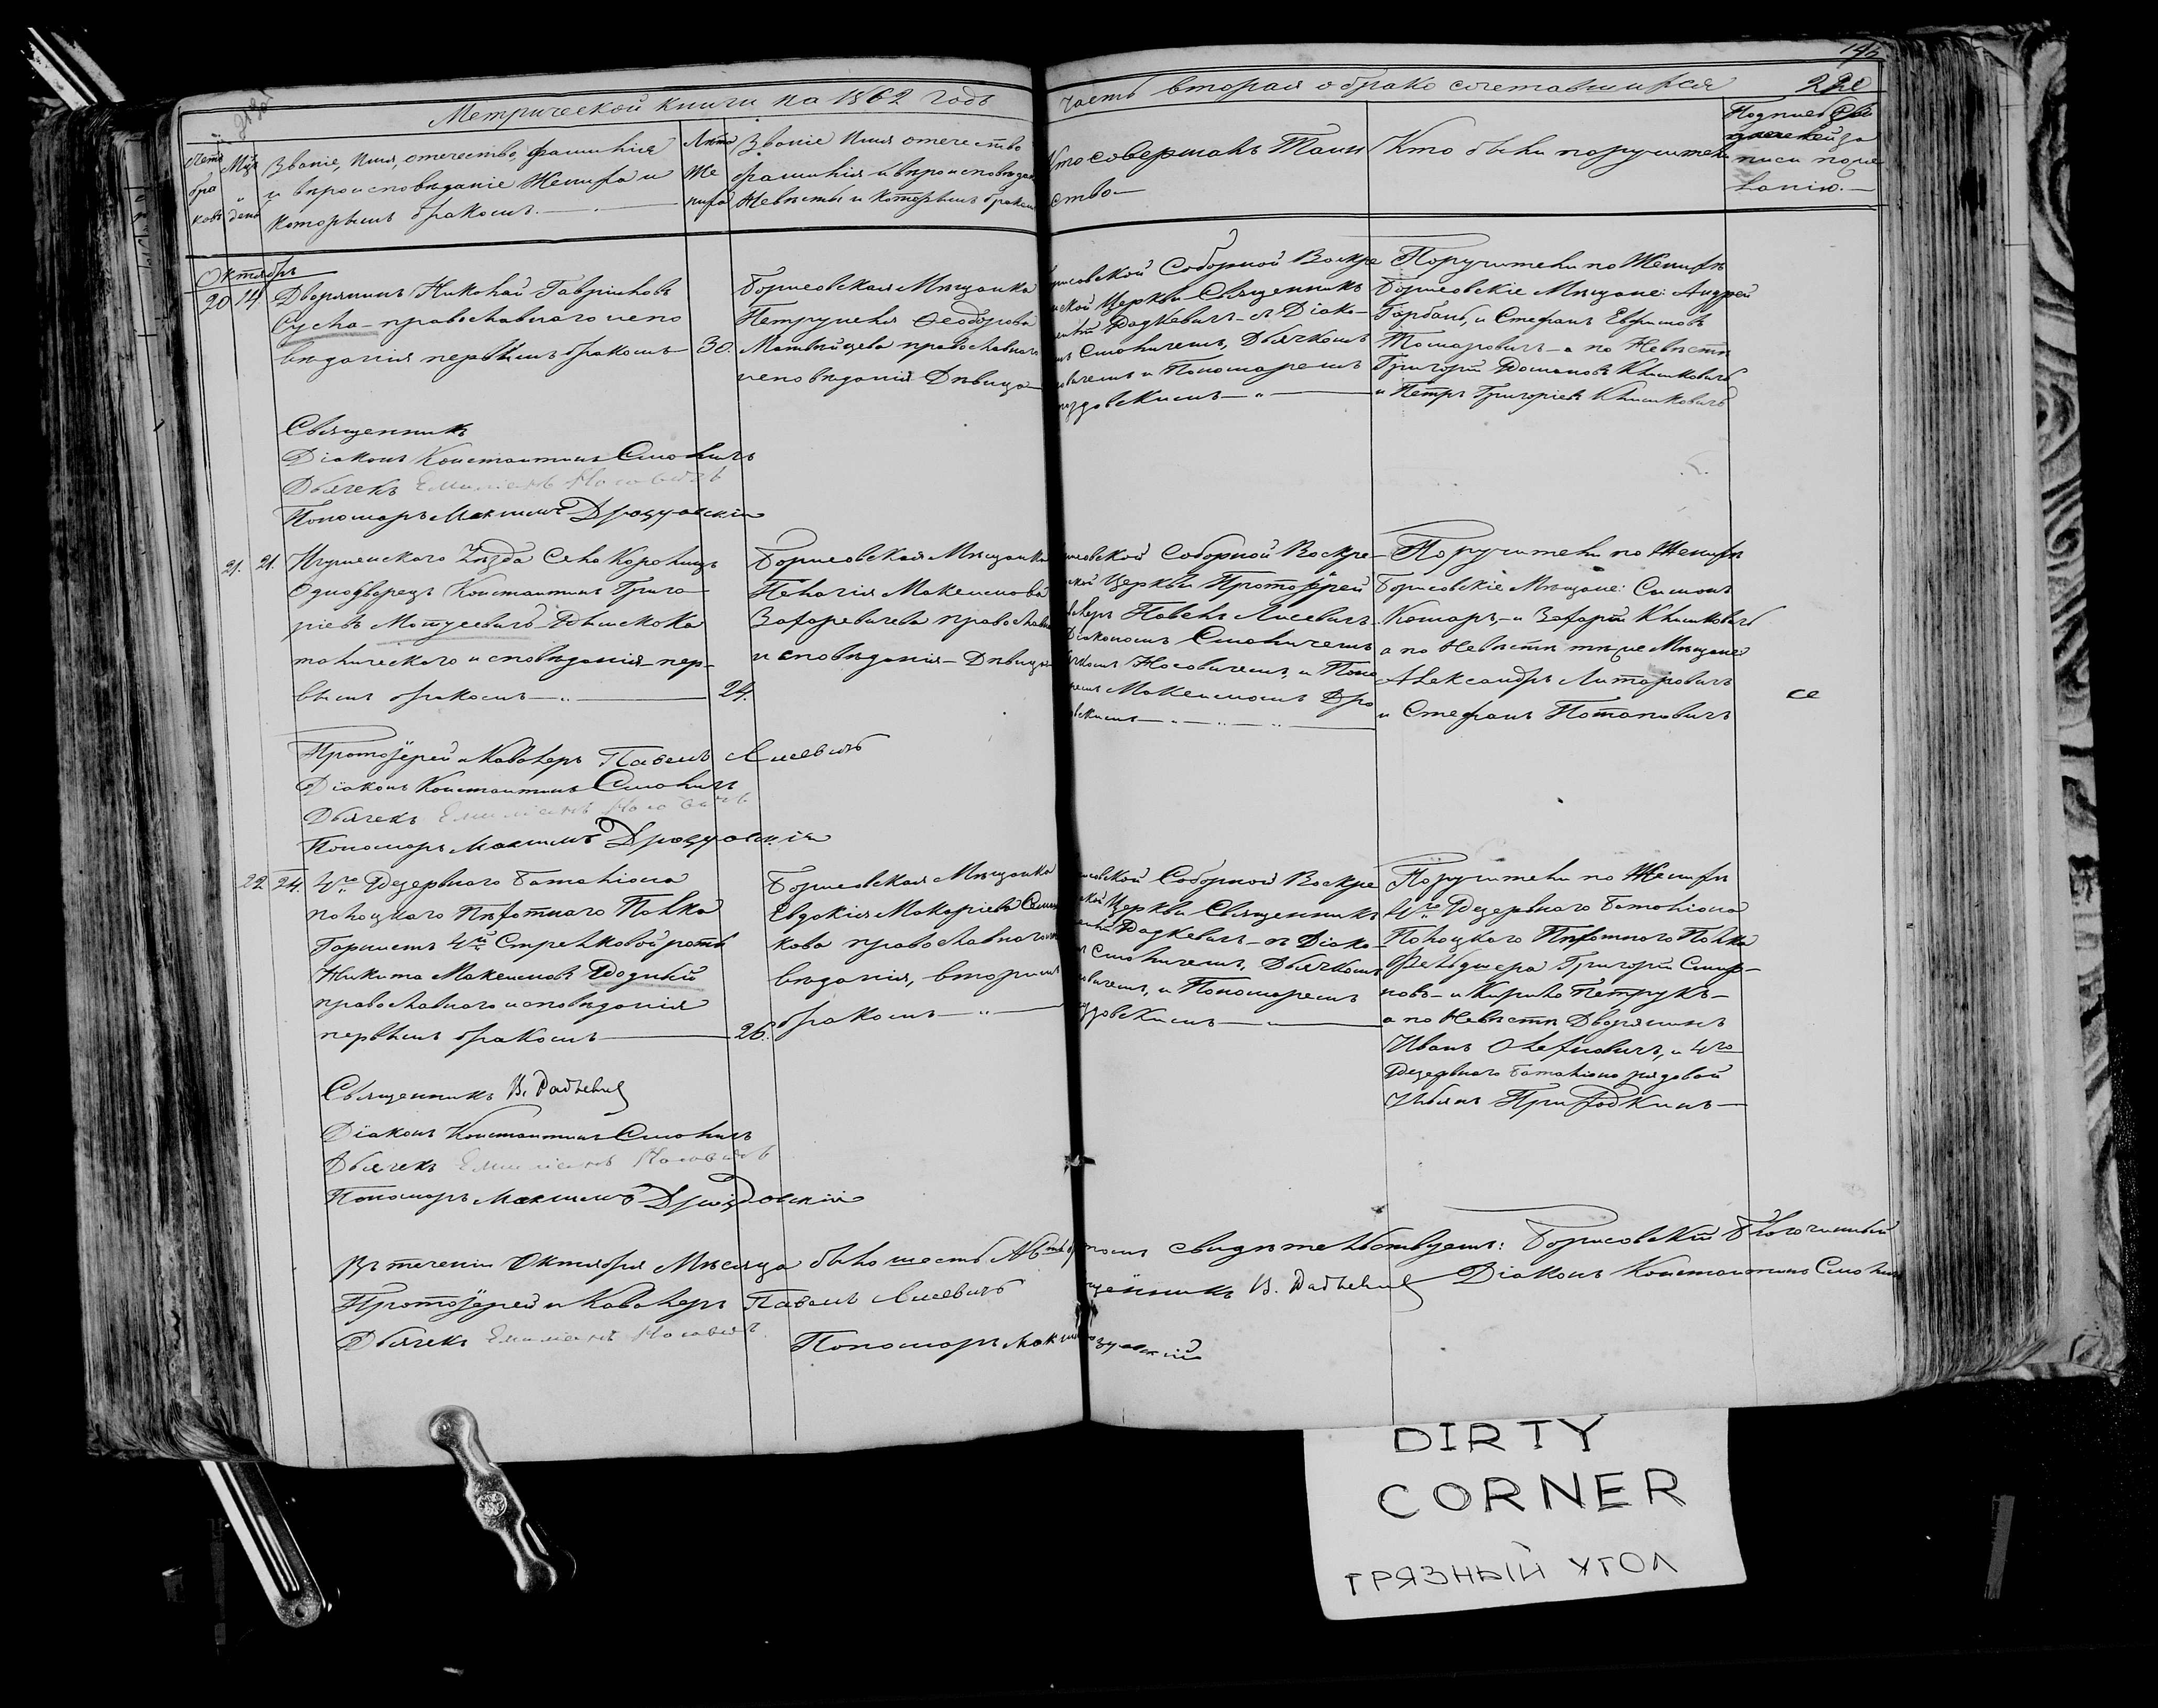 Метрической книги на 1862 годъ
часть вторая о бракосочетавшихся
196
220
Счетъ браковъ
Мцъ и день
Званіе, Имя, отечество, фамилія
и вѣроисповѣданіе Жениха и
которымъ бракомъ.
Лѣта Жениха
Званіе Имя отечество
фамилія и вѣроисповѣдан
Невѣсты и которымъ бракомъ
Кто совершалъ Таин
ство
Кто были поручители
Подпись
писи по же
ланію.
Октябрь
20 14 Дворянинъ Николай Гавріиловъ
Суска православнаго испо
вѣданія первымъ бракомъ 30.
Борисовская Мѣщанка
Петрунеля Ѳеодорова
Матвѣйцева православнаго
исповѣданія Дѣвица
рисовской Соборной Воскре
нской Церкви Священникъ
Радкевичъ съ Діако
мъ Смоличемъ, Дьячкомъ
овичемъ и Пономаремъ
здовскимъ
Поручители по Женихѣ
Борисовскіе Мѣщане: Андрей
Горбань, и Стефанъ Евфимовъ
Томаровичъ а по Невѣстѣ
Григорій Романовъ Климковичъ
и Петръ Григоріевъ Климковичъ
Священникъ
Діаконъ Константинъ Смоличъ
Дьячекъ Емиліанъ Носовичъ
Пономарь Максимъ Дроздовскій
21. 21. Игуменскаго Уѣзда Села Королищъ
Однодворецъ Константинъ Григо
ріевъ Матусевичъ Римскока
толическаго исповѣданія пер
вымъ бракомъ 24.
Борисовская Мѣщанка
Пелагія Максимова
Захаревичева православн
исповѣданія Дѣвица
исовской Соборной Воскре
ской Церкви Протоіерей
валеръ Павелъ Лисевичъ
Діакономъ Смоличемъ
ячкомъ Носовичемъ, и Поно
ремъ Максимомъ Дро
овскимъ
Поручители по Женихѣ
Борисовскіе Мѣщане: Симонъ
Комаръ, и Захарій Климковичъ
а по Невѣстѣ тѣ же Мѣщане
Александръ Литаровичъ
и Стефанъ Потаповичъ
се
Протоіерей и Кавалеръ Павелъ Лисевичъ
Діаконъ Константинъ Смоличъ
Дьячекъ Емиліанъ Носовичъ
Пономарь Максимъ Дроздовскій
22. 24. 4го Резервнаго Баталіона
полоцкаго Пѣхотнаго Полка
Горнистъ 4й Стрѣлковой роты
Никита Максимовъ Родный
православнаго исповѣданія
первымъ бракомъ 26.
Борисовская Мѣщанка
Евдокія Макаріева Семен
кова православнаго ис
вѣданія, вторымъ
бракомъ
исовской Соборной Воскре
ской Церкви Священникъ
Радкевичъ съ Діако
Смоличемъ, Дьячкомъ
овичемъ, и Пономаремъ
здовскимъ
Поручители по Женихѣ
4го Резервнаго Баталіона
Полоцкаго Пѣхотнаго Полка
Фельдшера Григорій Смир
новъ и Кирило Петрукъ
а по Невѣстѣ Дворянинъ
Иванъ Олехновичъ, и 4го
Резервнаго Баталіона рядовой
Ульянъ Приходкинъ
Священникъ В. Радкевичъ
Діаконъ Константинъ Смоличъ
Дьячекъ Емиліанъ Носовичъ
Пономарь Максимъ Дроздовскій
Въ теченіи Октября Мѣсяца было шесть свидѣтельствуемъ: Борисовскій Благочинный
Протоіерей и Кавалеръ Павелъ Лисевичъ щенникъ В. Радкевичъ Діаконъ Константинъ Смоличъ
Дьячекъ Емиліанъ Носовичъ Пономарь Максимъ здовскій
DIRTY
CORNER
ГРЯЗНЫЙ УГОЛ